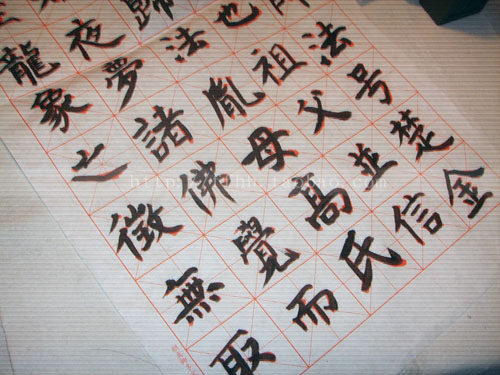 法号楚金
也祖父並信
歸法胤母高氏
夜夢諸佛覺而
龍象之徵無取